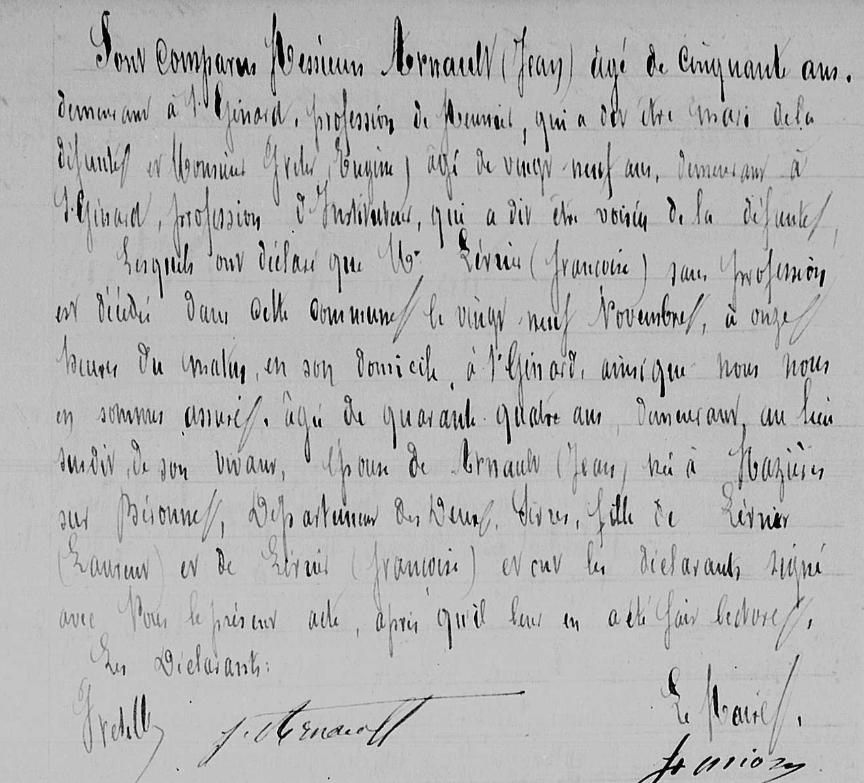 Sont comparus Messieurs Arnault (Jean) âgé de cinquante ans.
demeurant à St Génard, profession de Meunier, qui a dit être mari de la
défunte et Monsieur (Eugène) âgé de vingt neuf ans, demeurant à
St Génard, profession d'Instituteur, qui a dit être voisin de la défunte,
Lesquels ont déclaré que Me Lévrier (Françoise) sans profession
est décédée dans cette commune le vingt neuf Novembre, à onze
heures du matin, en son domicile, à St Génard, ainsi que nous nous
en sommes assuré. âgée de quarante quatre ans, demeurant, au lieu
susdit, de son vivant, épouse de Arnault (Jean) née à Mazières
sur Béronne, Département des Deux-Sèvres, fille de Lévrier
(Laurent) et de Lévrier (Françoise) et ont les déclarants signé
avec Nous le présent acte, après qu'il leur en a été fait lecture.
Les Déclarants:
Le Maire,
J. Arnault